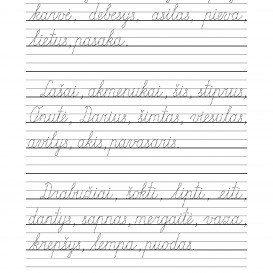 karvė, debesys, asilas, pieva,
lietus, pasaka.
Lašai, akmenukai, šis, stiprus,
Onutė, Darius, šimtas, viesulas,
avilys, akis, pavasaris.
Drabužiai, šokti, lipti, eiti,
dantys, sapnas, mergaitė, vaza,
krepšys, lempa, puodas.